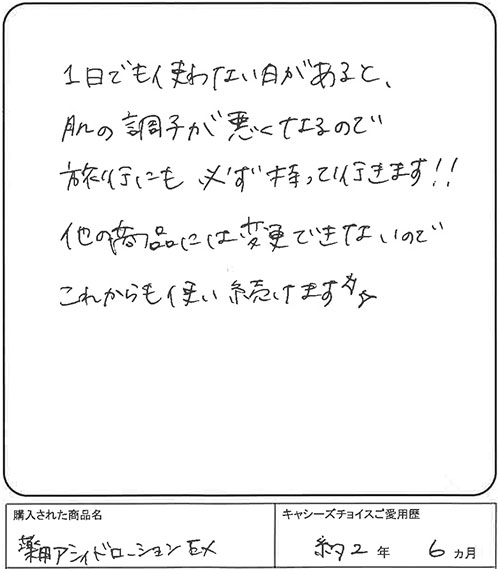 1日でも使わない日があると、
肌の調子が悪くなるので
旅行にも必ず持って行きます!!
他の商品には変更できないので
これからも使い続けます☆☆
購入された商品名
薬用アシィドローションEX
キャシーズチョイスご愛用歴
約2年 6ヵ月